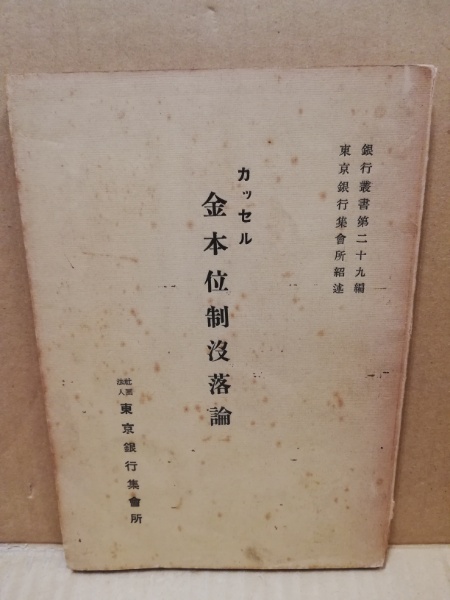 銀行叢書第二十九編
東京銀行集會所紹述
カッセル
金本位制没落論
社團
法人
東京銀行集會所